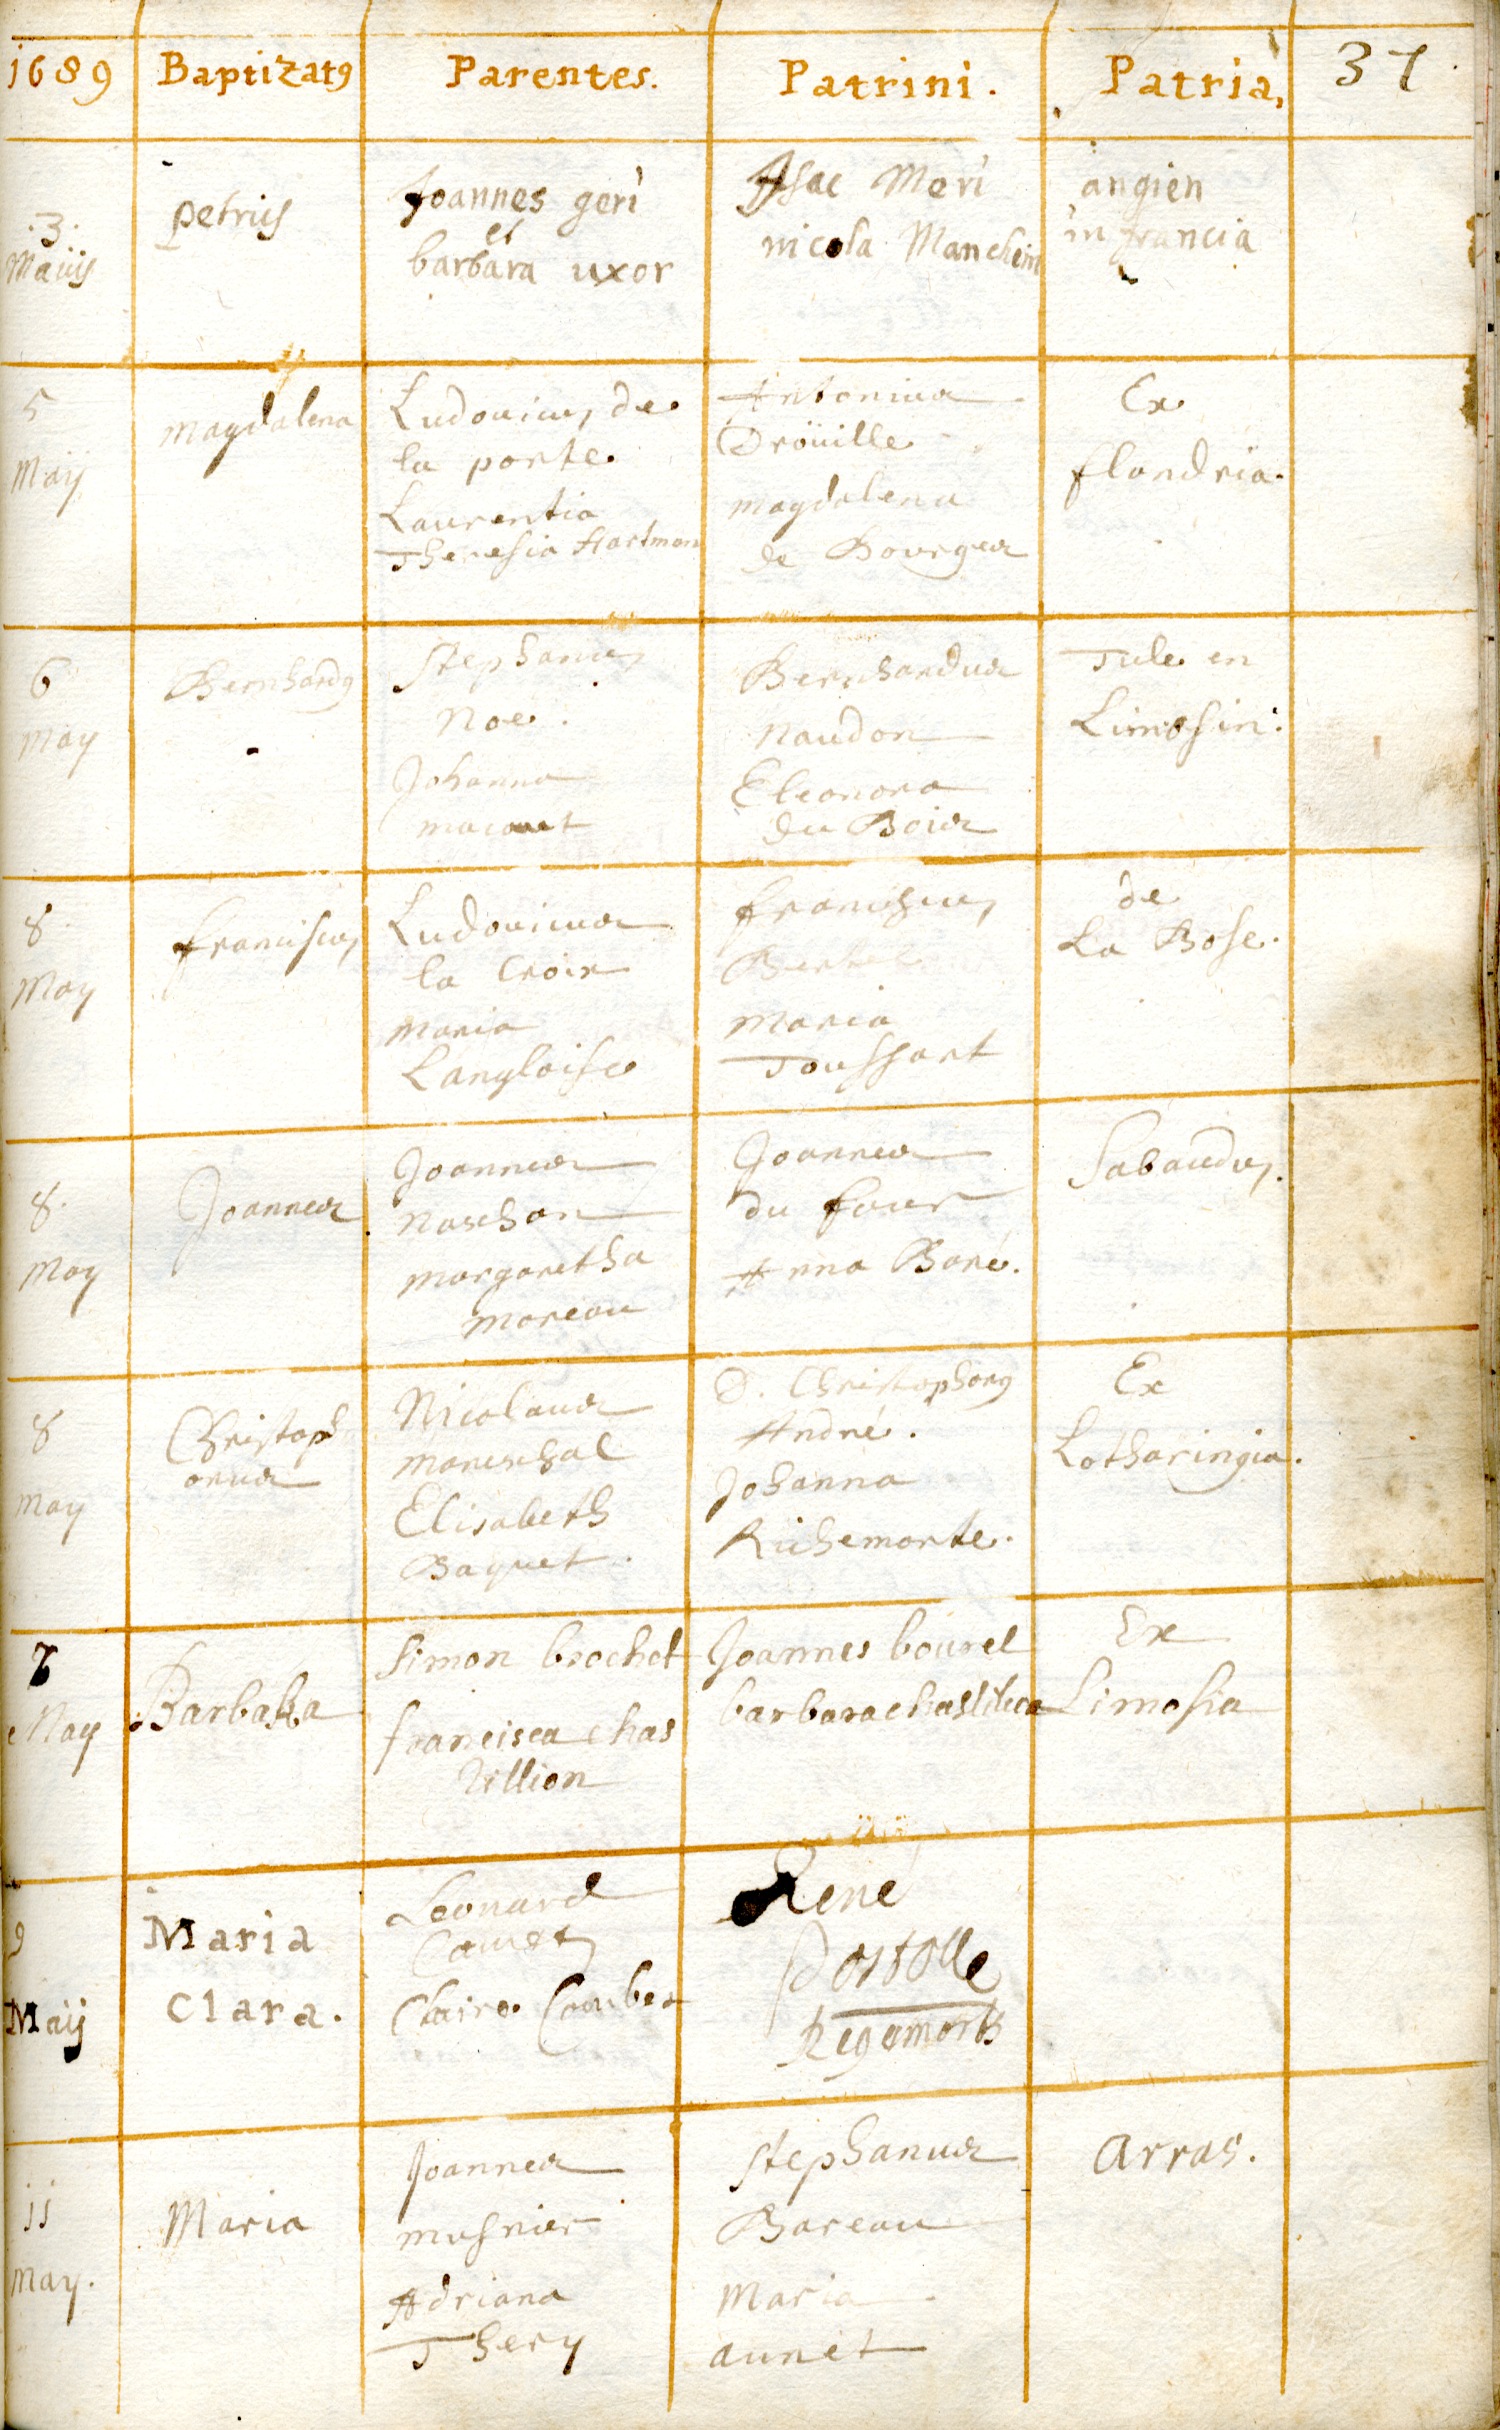 1689 Baptizat9 Parentes. Patrini. Patria, 37
.3.
Maiis
petrus
Joannes geri
et
barbara uxor
Isac Meri
nicola Manchein
angien
in francia
5
May
Magdalena
Ludovicus de
la porte
Laurentia
Theresia Hartman
Antonius
Droüille
Magdalena
de Bourges
Ex
flandria.
6
May
Bernhard9
Stephanus
Noe.
Johanna
Bernhardus
Naudon
Eleonora
du Bois
Tule en
Limosin:
8
May
Franciscus
Ludovicus
la Croix
Maria
Langloise
Franciscus
Maria
Toussart
de
La Bose.
8.
May
Joannes
Joannes
Naschon
Margaretha
Moreau
Joannes
du four
Anna Boné.
Sabaudus.
8
May
Christoph
orus
Nicolaus
Mareschal
Elisabeth
Baquet.
D. Christophor9
André.
Johanna
Richemonte.
Ex
Lotharingia.
7
May
Barbara
Simon brochet
francisca chas
tillion
Joannes bourel
barbara
Ex
Limosia
9
Maij
Maria
Clara.
Leonard
Claire Combes
René
11
May.
Maria
Joannes
Musnier
Adriana
Thery
Stephanus
Bareau
Maria
aunet
Arras.